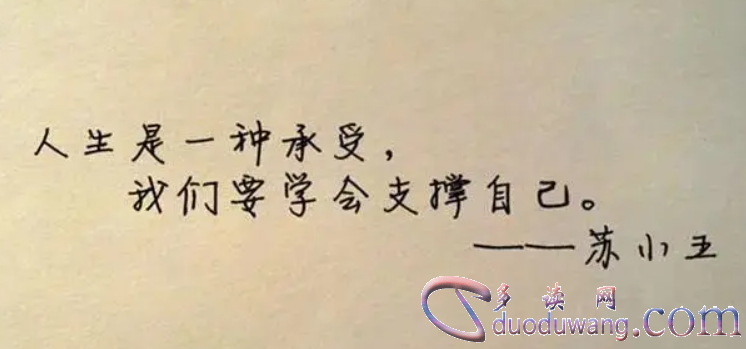 人生是一种承受，
我们要学会支撑自己。
——苏小王
多读网
duoduwang.com